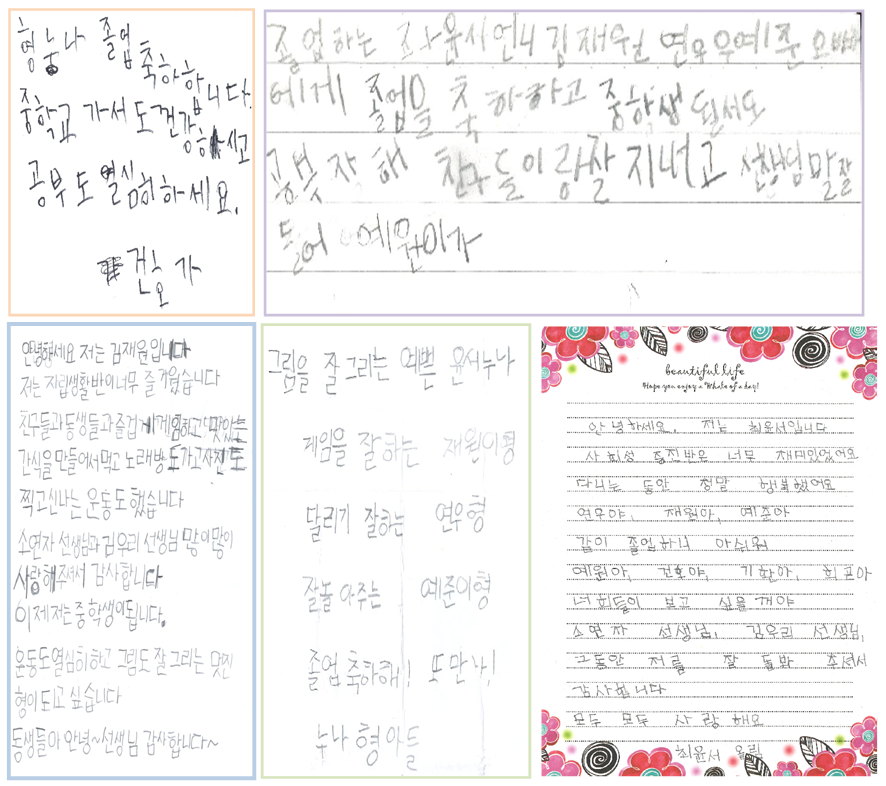 형 누나 졸업
축하합
니다.
중학교 가서도 건강하시고
공부도 열심히 하세요.
건호가
졸업하는 최윤서언니 김재원 연우 우예준 오빠
에게 졸업을 축하하고 중학생 되서도
공부 잘해 친구들이랑 잘 지내고 선생님 말 잘
들어 예원이가
안녕하세요 저는 김재원입니다
저는 자립생활반이 너무 즐거웠습니다
친구들과 동생들과 즐겁게 게임하고 맛있는
간식을 만들어서 먹고 노래방도 가고 사진도
찍고 신나는 운동도 했습니다
소연자 선생님과 김우리 선생님 많이많이
사랑해주셔서 감사합니다
이제 저는 중학생이 됩니다.
운동도 열심히 하고 그림도 잘 그리는 멋진
형이 되고 싶습니다
동생들아 안녕~선생님 감사합니다~
그림을 잘 그리는 예쁜 윤서누나
게임을 잘 하는 재원이형
달리기 잘하는 연우형
잘 놀아주는 예준이형
졸업 축하해! 또 만나!
누나 형아들
beautiful life
Hope you enjoy a Whole of a day!
안녕하세요. 저는 최윤서입니다
사회성 증진반은 너무 재미있었어요
다니는 동안 정말 행복했어요
연우야, 재원아, 예준아
같이 졸업하니 아쉬워
예원아, 건호야, 기환아, 희고아
너희들이 보고 싶을거야
소연자 선생님, 김우리 선생님,
그동안 저를 잘 돌봐 주셔서
감사합니다
모두 모두 사랑해요
최윤서 올림